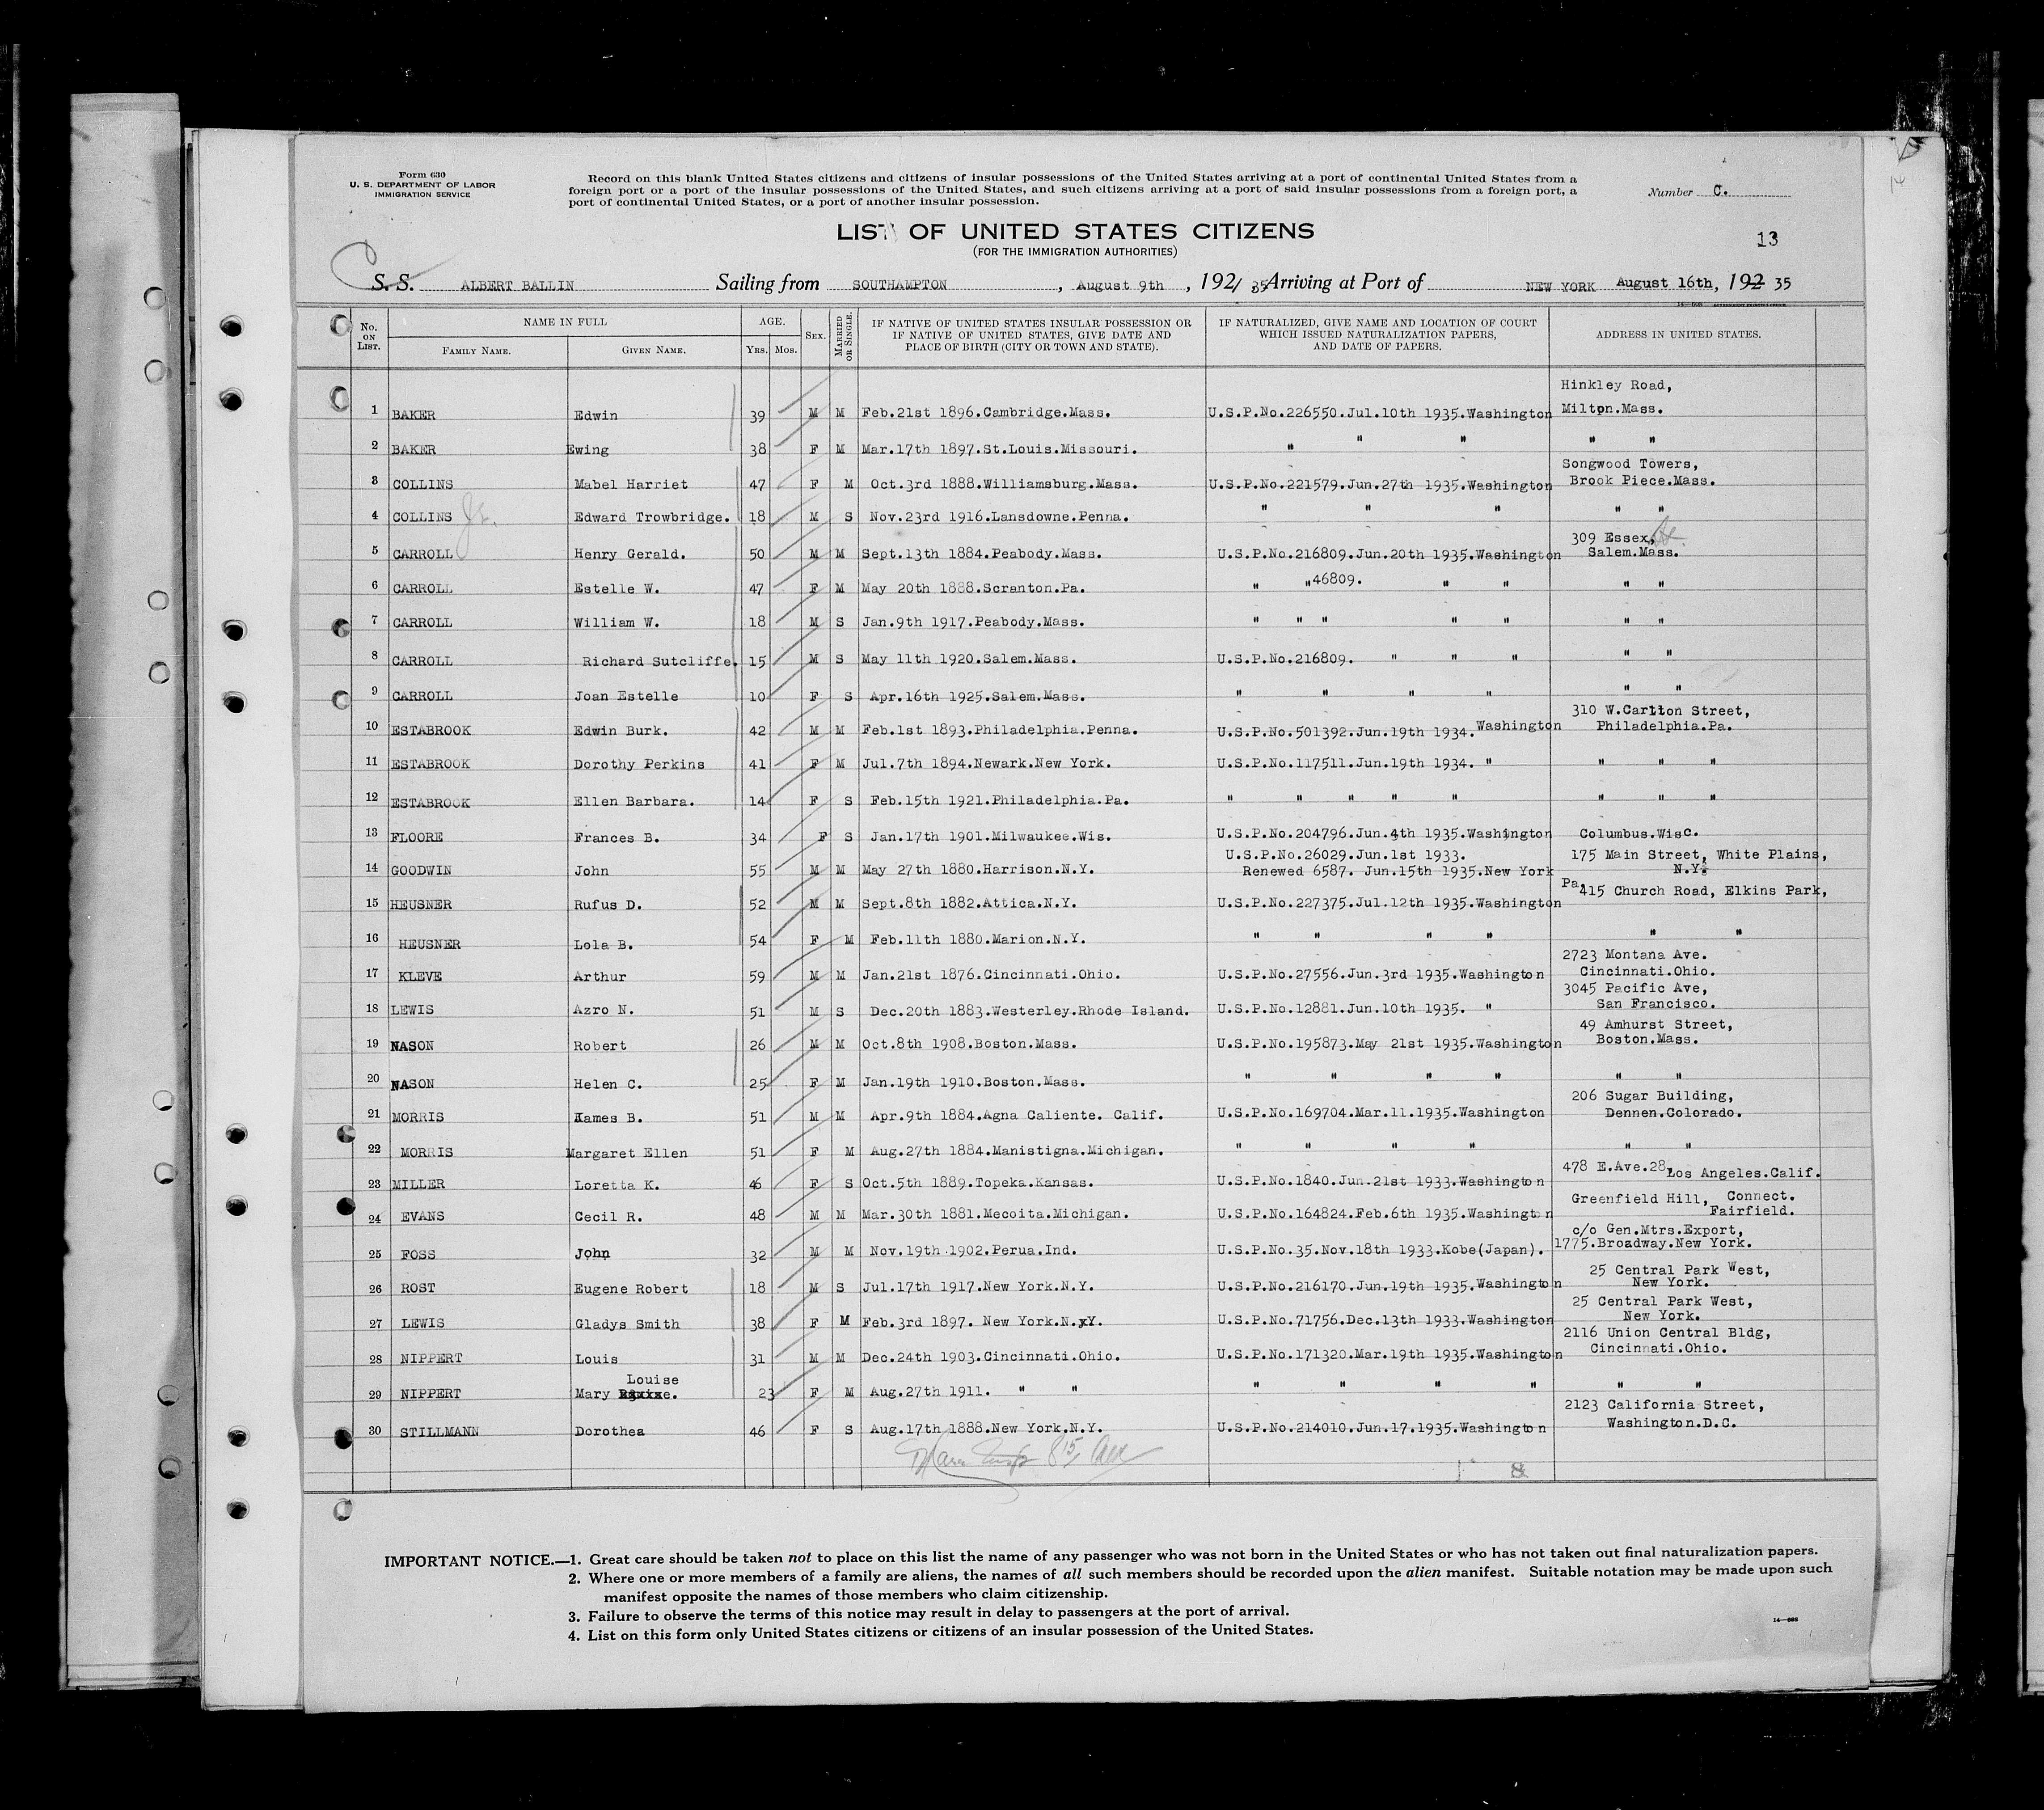 Form 630
U. S. DEPARTMENT OF LABOR
IMMIGRATION SERVICE
Record on this blank United States citizens and citizens of insular possessions of the United States arriving at a port of continental United States from a
foreign port or a port of the insular possessions of the United States, and such citizens arriving at a port of said insular possessions from a foreign port, a
port of continental United States, or a port of another insular possession.
Number C.
LIST OF UNITED STATES CITIZENS
(FOR THE IMMIGRATION AUTHORITIES)
13
S. S. ALBERT BALLIN Sailing from SOUTHAMPTON , August 9th , 192/ 35 Arriving at Port of NEW YORK August 16th, 192 35
No. ON LIST. NAME IN FULL AGE. SEX. MARRIED OR SINGLE. IF NATIVE OF UNITED STATES INSULAR POSSESSION OR IF NATIVE OF UNITED STATES, GIVE DATE AND PLACE OF BIRTH (CITY OR TOWN AND STATE). IF NATURALIZED, GIVE NAME AND LOCATION OF COURT WHICH ISSUED NATURALIZATION PAPERS, AND DATE OF PAPERS. ADDRESS IN UNITED STATES.
FAMILY NAME. GIVEN NAME. YRS. MOS.
Hinkley Road,
1 BAKER Edwin 39 M M Feb.21st 1896.Cambridge.Mass. U.S.P.No.226550.Jul.10th 1935.Washington Milton.Mass.
2 BAKER Ewing 38 F M Mar.17th 1897.St.Louis.Missouri. " " " " "
Songwood Towers,
3 COLLINS Mabel Harriet 47 F M Oct.3rd 1888.Williamsburg.Mass. U.S.P.No.221579.Jun.27th 1935.Washington Brook Piece.Mass.
4 COLLINS Jr. Edward Trowbridge. 18 M S Nov.23rd 1916.Lansdowne.Penna. " " " " "
309 Essex, St.
5 CARROLL Henry Gerald. 50 M M Sept.13th 1884.Peabody.Mass. U.S.P.No.216809.Jun.20th 1935.Washington Salem.Mass.
6 CARROLL Estelle W. 47 F M May 20th 1888.Scranton.Pa. " "46809. " " " "
7 CARROLL William W. 18 M S Jan.9th 1917.Peabody.Mass. " " " " " " "
8 CARROLL Richard Sutcliffe. 15 M S May 11th 1920.Salem.Mass. U.S.P.No.216809. " " " " "
9 CARROLL Joan Estelle 10 F S Apr.16th 1925.Salem.Mass. " " " " " "
310 W.Carlton Street,
10 ESTABROOK Edwin Burk. 42 M M Feb.1st 1893.Philadelphia.Penna. U.S.P.No.501392.Jun.19th 1934.Washington Philadelphia.Pa.
11 ESTABROOK Dorothy Perkins 41 F M Jul.7th 1894.Newark.New York. U.S.P.No.117511.Jun.19th 1934. " " " "
12 ESTABROOK Ellen Barbara. 14 F S Feb.15th 1921.Philadelphia.Pa. " " " " " " " "
13 FLOORE Frances B. 34 F S Jan.17th 1901.Milwaukee.Wis. U.S.P.No.204796.Jun.4th 1935.Washington Columbus.Wisc.
U.S.P.No.26029.Jun.1st 1933. 175 Main Street, White Plains,
14 GOODWIN John 55 M M May 27th 1880.Harrison.N.Y. Renewed 6587. Jun.15th 1935.New York N.Y.
Pa. 415 Church Road, Elkins Park,
15 HEUSNER Rufus D. 52 M M Sept.8th 1882.Attica.N.Y. U.S.P.No.227375.Jul.12th 1935.Washington
16 HEUSNER Lola B. 54 F M Feb.11th 1880.Marion.N.Y. " " " " " "
2723 Montana Ave.
17 KLEVE Arthur 59 M M Jan.21st 1876.Cincinnati.Ohio. U.S.P.No.27556.Jun.3rd 1935.Washington Cincinnati.Ohio.
3045 Pacific Ave,
18 LEWIS Azro N. 51 M S Dec.20th 1883.Westerley.Rhode Island. U.S.P.No.12881.Jun.10th 1935. " San Francisco.
49 Amhurst Street,
19 NASON Robert 26 M M Oct.8th 1908.Boston.Mass. U.S.P.No.195873.May 21st 1935.Washington Boston.Mass.
20 NASON Helen C. 25 F M Jan.19th 1910.Boston.Mass. " " " " " "
206 Sugar Building,
21 MORRIS James B. 51 M M Apr.9th 1884.Agna Caliente. Calif. U.S.P.No.169704.Mar.11.1935.Washington Dennen.Colorado.
22 MORRIS Margaret Ellen 51 F M Aug.27th 1884.Manistigna.Michigan. " " " " " "
478 E.Ave.28, Los Angeles.Calif.
23 MILLER Loretta K. 46 F S Oct.5th 1889.Topeka.Kansas. U.S.P.No.1840.Jun.21st 1933.Washington
Greenfield Hill, Connect.
24 EVANS Cecil R. 48 M M Mar.30th 1881.Mecoita.Michigan. U.S.P.No.164824.Feb.6th 1935.Washington Fairfield.
c/o Gen.Mtrs.Export,
25 FOSS John 32 M M Nov.19th 1902.Perua.Ind. U.S.P.No.35.Nov.18th 1933.Kobe(Japan). 1775.Broadway.New York.
25 Central Park West,
26 ROST Eugene Robert 18 M S Jul.17th 1917.New York.N.Y. U.S.P.No.216170.Jun.19th 1935.Washington New York.
25 Central Park West,
27 LEWIS Gladys Smith 38 F M Feb.3rd 1897. New York.N.xY. U.S.P.No.71756.Dec.13th 1933.Washington New York.
2116 Union Central Bldg,
28 NIPPERT Louis 31 M M Dec.24th 1903.Cincinnati.Ohio. U.S.P.No.171320.Mar.19th 1935.Washington Cincinnati.Ohio.
Louise
29 NIPPERT Mary 23 F M Aug.27th 1911. " " " " " " " "
2123 California Street,
30 STILLMANN Dorothea 46 F S Aug.17th 1888.New York.N.Y. U.S.P.No.214010.Jun.17.1935.Washington Washington.D.C.
IMPORTANT NOTICE.—1. Great care should be taken not to place on this list the name of any passenger who was not born in the United States or who has not taken out final naturalization papers.
2. Where one or more members of a family are aliens, the names of all such members should be recorded upon the alien manifest. Suitable notation may be made upon such
manifest opposite the names of those members who claim citizenship.
3. Failure to observe the terms of this notice may result in delay to passengers at the port of arrival.
4. List on this form only United States citizens or citizens of an insular possession of the United States.